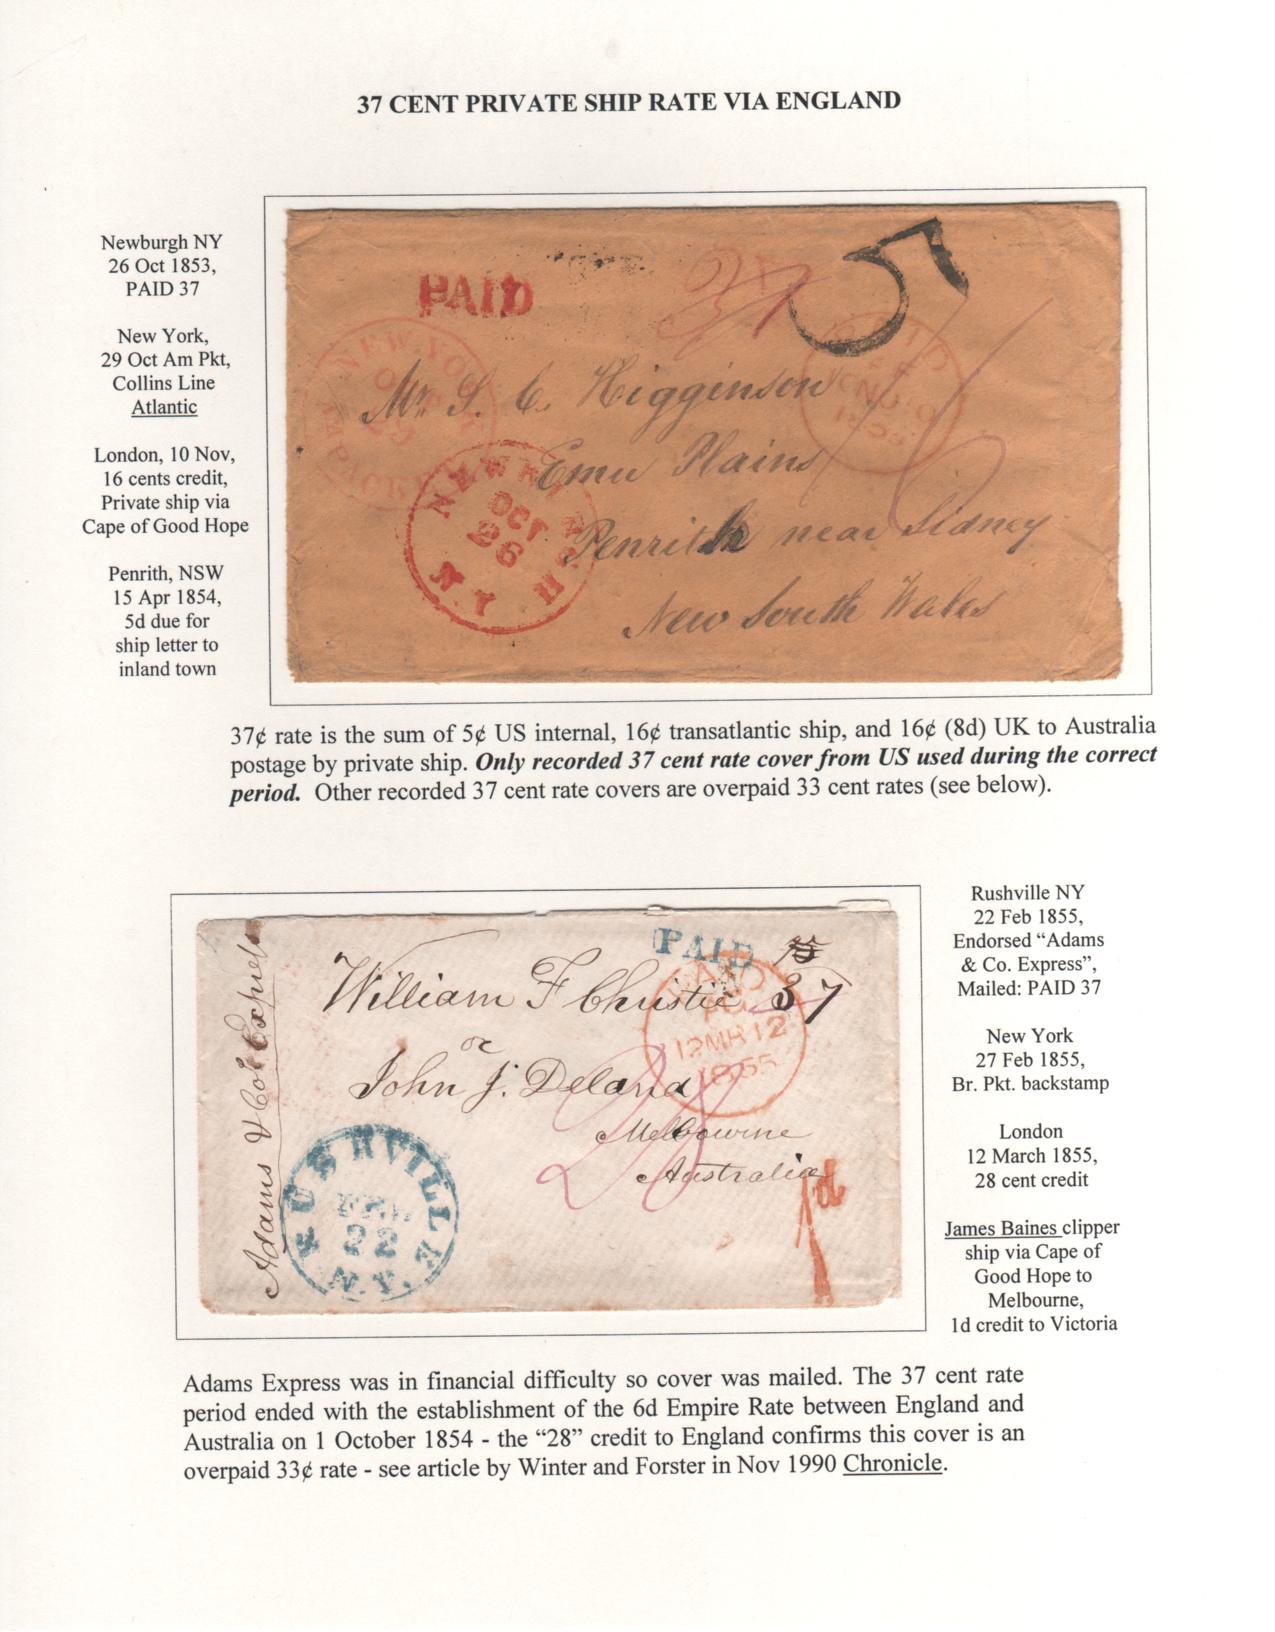 37 CENT PRIVATE SHIP RATE VIA ENGLAND
Newburgh NY
26 Oct 1853,
PAID 37
New York,
29 Oct Am Pkt,
Collins Line
Atlantic
London, 10 Nov,
16 cents credit,
Private ship via
Cape of Good Hope
Penrith, NSW
15 Apr 1854,
5d due for
ship letter to
inland town
PAID
37
5
NEW YORK
AM PACKET
Mr. S. C. Higginson
Emu Plains
Penrith near Sidney
New South Wales
16
NEWBURGH
OCT
26
N.Y
37¢ rate is the sum of 5¢ US internal, 16¢ transatlantic ship, and 16¢ (8d) UK to Australia
postage by private ship. Only recorded 37 cent rate cover from US used during the correct
period. Other recorded 37 cent rate covers are overpaid 33 cent rates (see below).
Adams & Co's Express
PAID
37
William F Christie
or
John J. Deland
Melbourne
Australia
PAID
12 MR 12
1855
28
1d
RUSHVILLE
FEB.
22
N.Y.
Rushville NY
22 Feb 1855,
Endorsed “Adams
& Co. Express”,
Mailed: PAID 37
New York
27 Feb 1855,
Br. Pkt. backstamp
London
12 March 1855,
28 cent credit
James Baines clipper
ship via Cape of
Good Hope to
Melbourne,
1d credit to Victoria
Adams Express was in financial difficulty so cover was mailed. The 37 cent rate
period ended with the establishment of the 6d Empire Rate between England and
Australia on 1 October 1854 - the “28” credit to England confirms this cover is an
overpaid 33¢ rate - see article by Winter and Forster in Nov 1990 Chronicle.